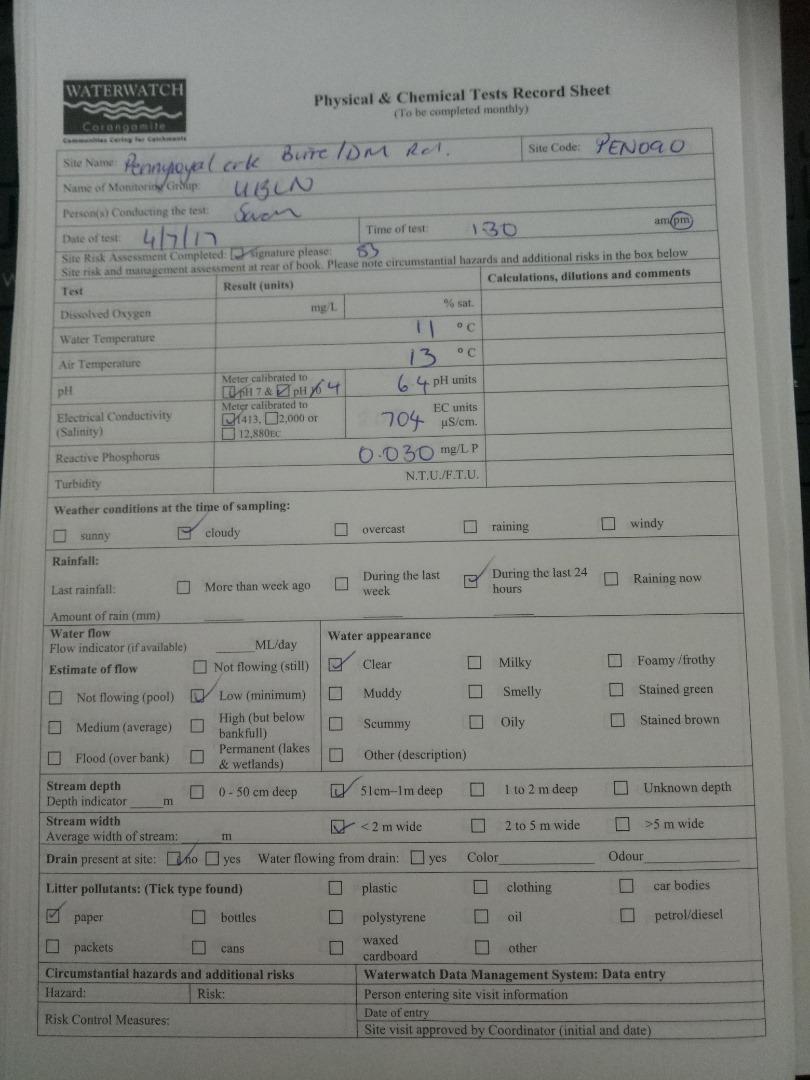 WATERWATCH
Corangamite
Communities Caring for Catchments
Physical & Chemical Tests Record Sheet
(To be completed monthly)
Site Name: Pennyroyal crk Birre/DM Rd.
Site Code: PEN090
Name of Monitoring Group: UBLN
Person(s) Conducting the test:
Date of test: 4/7/17
Time of test: 130 am pm
Site Risk Assessment Completed: signature please:
Site risk and management assessment at rear of book. Please note circumstantial hazards and additional risks in the box below
Test Result (units) Calculations, dilutions and comments
Dissolved Oxygen mg/L % sat.
Water Temperature 11 °C
Air Temperature 13 °C
pH Meter calibrated to pH 7 & pH 4 6.4 pH units
Electrical Conductivity (Salinity) Meter calibrated to 1413, 2,000 or 12,880EC 704 EC units µS/cm.
Reactive Phosphorus 0.030 mg/L P
Turbidity N.T.U./F.T.U.
Weather conditions at the time of sampling:
sunny cloudy overcast raining windy
Rainfall:
Last rainfall: More than week ago During the last week During the last 24 hours Raining now
Amount of rain (mm)
Water flow
Flow indicator (if available) ML/day
Estimate of flow Not flowing (still)
Not flowing (pool) Low (minimum)
Medium (average) High (but below bankfull)
Flood (over bank) Permanent (lakes & wetlands)
Water appearance
Clear Milky Foamy /frothy
Muddy Smelly Stained green
Scummy Oily Stained brown
Other (description)
Stream depth
Depth indicator m 0 - 50 cm deep 51cm–1m deep 1 to 2 m deep Unknown depth
Stream width
Average width of stream: m < 2 m wide 2 to 5 m wide >5 m wide
Drain present at site: no yes Water flowing from drain: yes Color Odour
Litter pollutants: (Tick type found) plastic clothing car bodies
paper bottles polystyrene oil petrol/diesel
packets cans waxed cardboard other
Circumstantial hazards and additional risks
Hazard: Risk:
Risk Control Measures:
Waterwatch Data Management System: Data entry
Person entering site visit information
Date of entry
Site visit approved by Coordinator (initial and date)